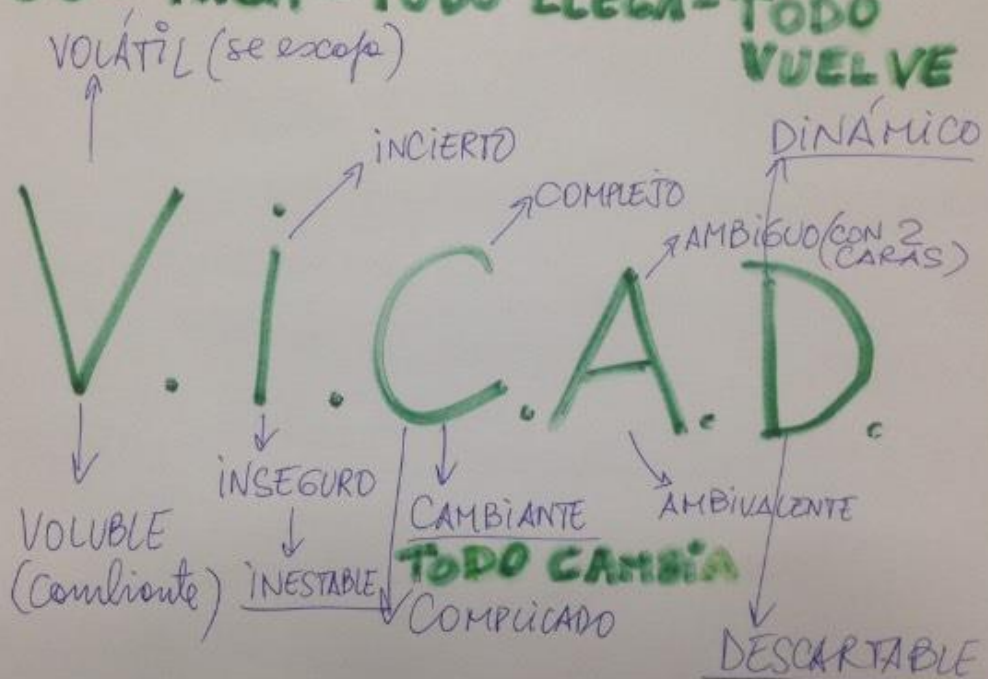 TODO LLEGA - TODO
VUELVE
VOLÁTIL (se escapa)
DINÁMICO
INCIERTO
COMPLEJO
AMBIGUO (CON 2
CARAS)
V.I.C.A.D.
INSEGURO
VOLUBLE
(Cambiante)
INESTABLE
CAMBIANTE
TODO CAMBIA
COMPLICADO
AMBIVALENTE
DESCARTABLE